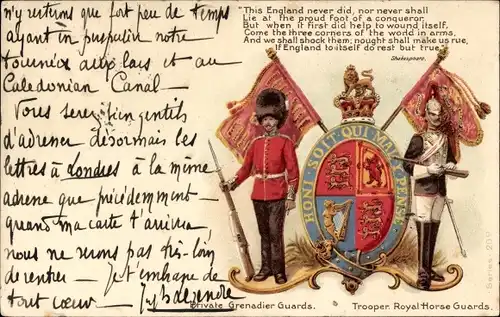 "This England never did, nor never shall
Lie at the proud foot of a conqueror,
But when it first did help to wound itself.
Come the three corners of the world in arms,
And we shall shock them; nought shall make us rue,
If England to itself do rest but true."
Shakespeare.
n'y restons que fort peu de temps
ayant en notre
tournée aux lacs et au
Caledonian Canal —
Vous serez bien gentils
d'adresser désormais les
lettres à Londres à la même
adresse que précédemment —
quand ma carte t'arrivera
nous ne serons pas très loin
de rentrer — Je t'embrasse de
tout coeur —
HONI SOIT QUI MAL Y PENSE
Private Grenadier Guards.
Trooper. Royal Horse Guards.